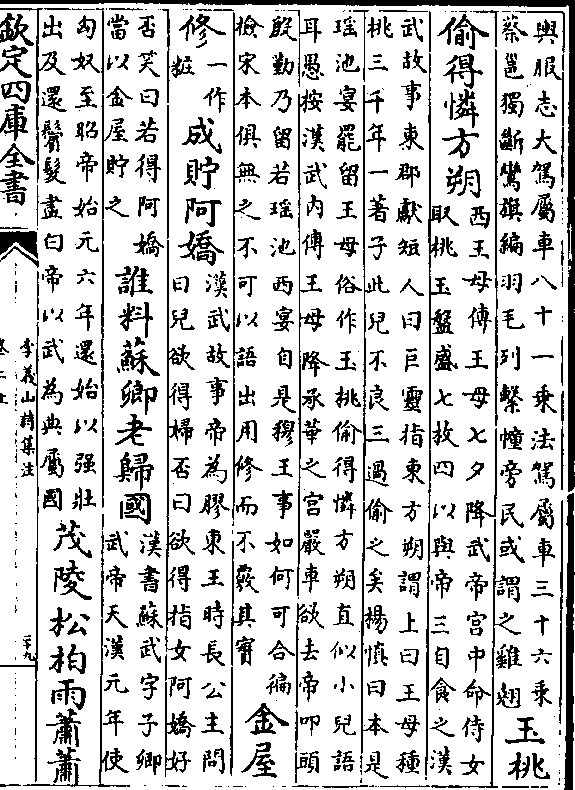 輿服志大駕屬車八十一乘法駕屬車三十六乘
蔡邕獨斷鸞旗編羽毛列繫幢旁民或謂之雞翹
玉桃
偷得憐方朔
西王母傳王母七夕降武帝宮中命侍女
取桃玉盤盛七枚四以與帝三自食之漢
武故事東郡獻短人曰巨靈指東方朔謂上曰王母種
桃三千年一著子此兒不良三過偷之矣楊慎曰本是
瑶池宴罷留王母俗作玉桃偷得憐方朔直似小兒語
耳愚按漢武內傳王母降承華之宮嚴車欲去帝叩頭
殷勤乃留若瑶池西宴自是穆王事如何可合徧
檢宋本俱無之不可以語出用修而不覈其實
金屋
修
一作
粧
成貯阿嬌
漢武故事帝為膠東王時長公主問
曰兒欲得婦否曰欲得指女阿嬌好
否笑曰若得阿嬌
當以金屋貯之
誰料蘇卿老歸國
漢書蘇武字子卿
武帝天漢元年使
匈奴至昭帝始元六年還始以强壯
出及還鬢髮盡白帝以武為典屬國
茂陵松柏雨蕭蕭
欽定四庫全書
李義山詩集注